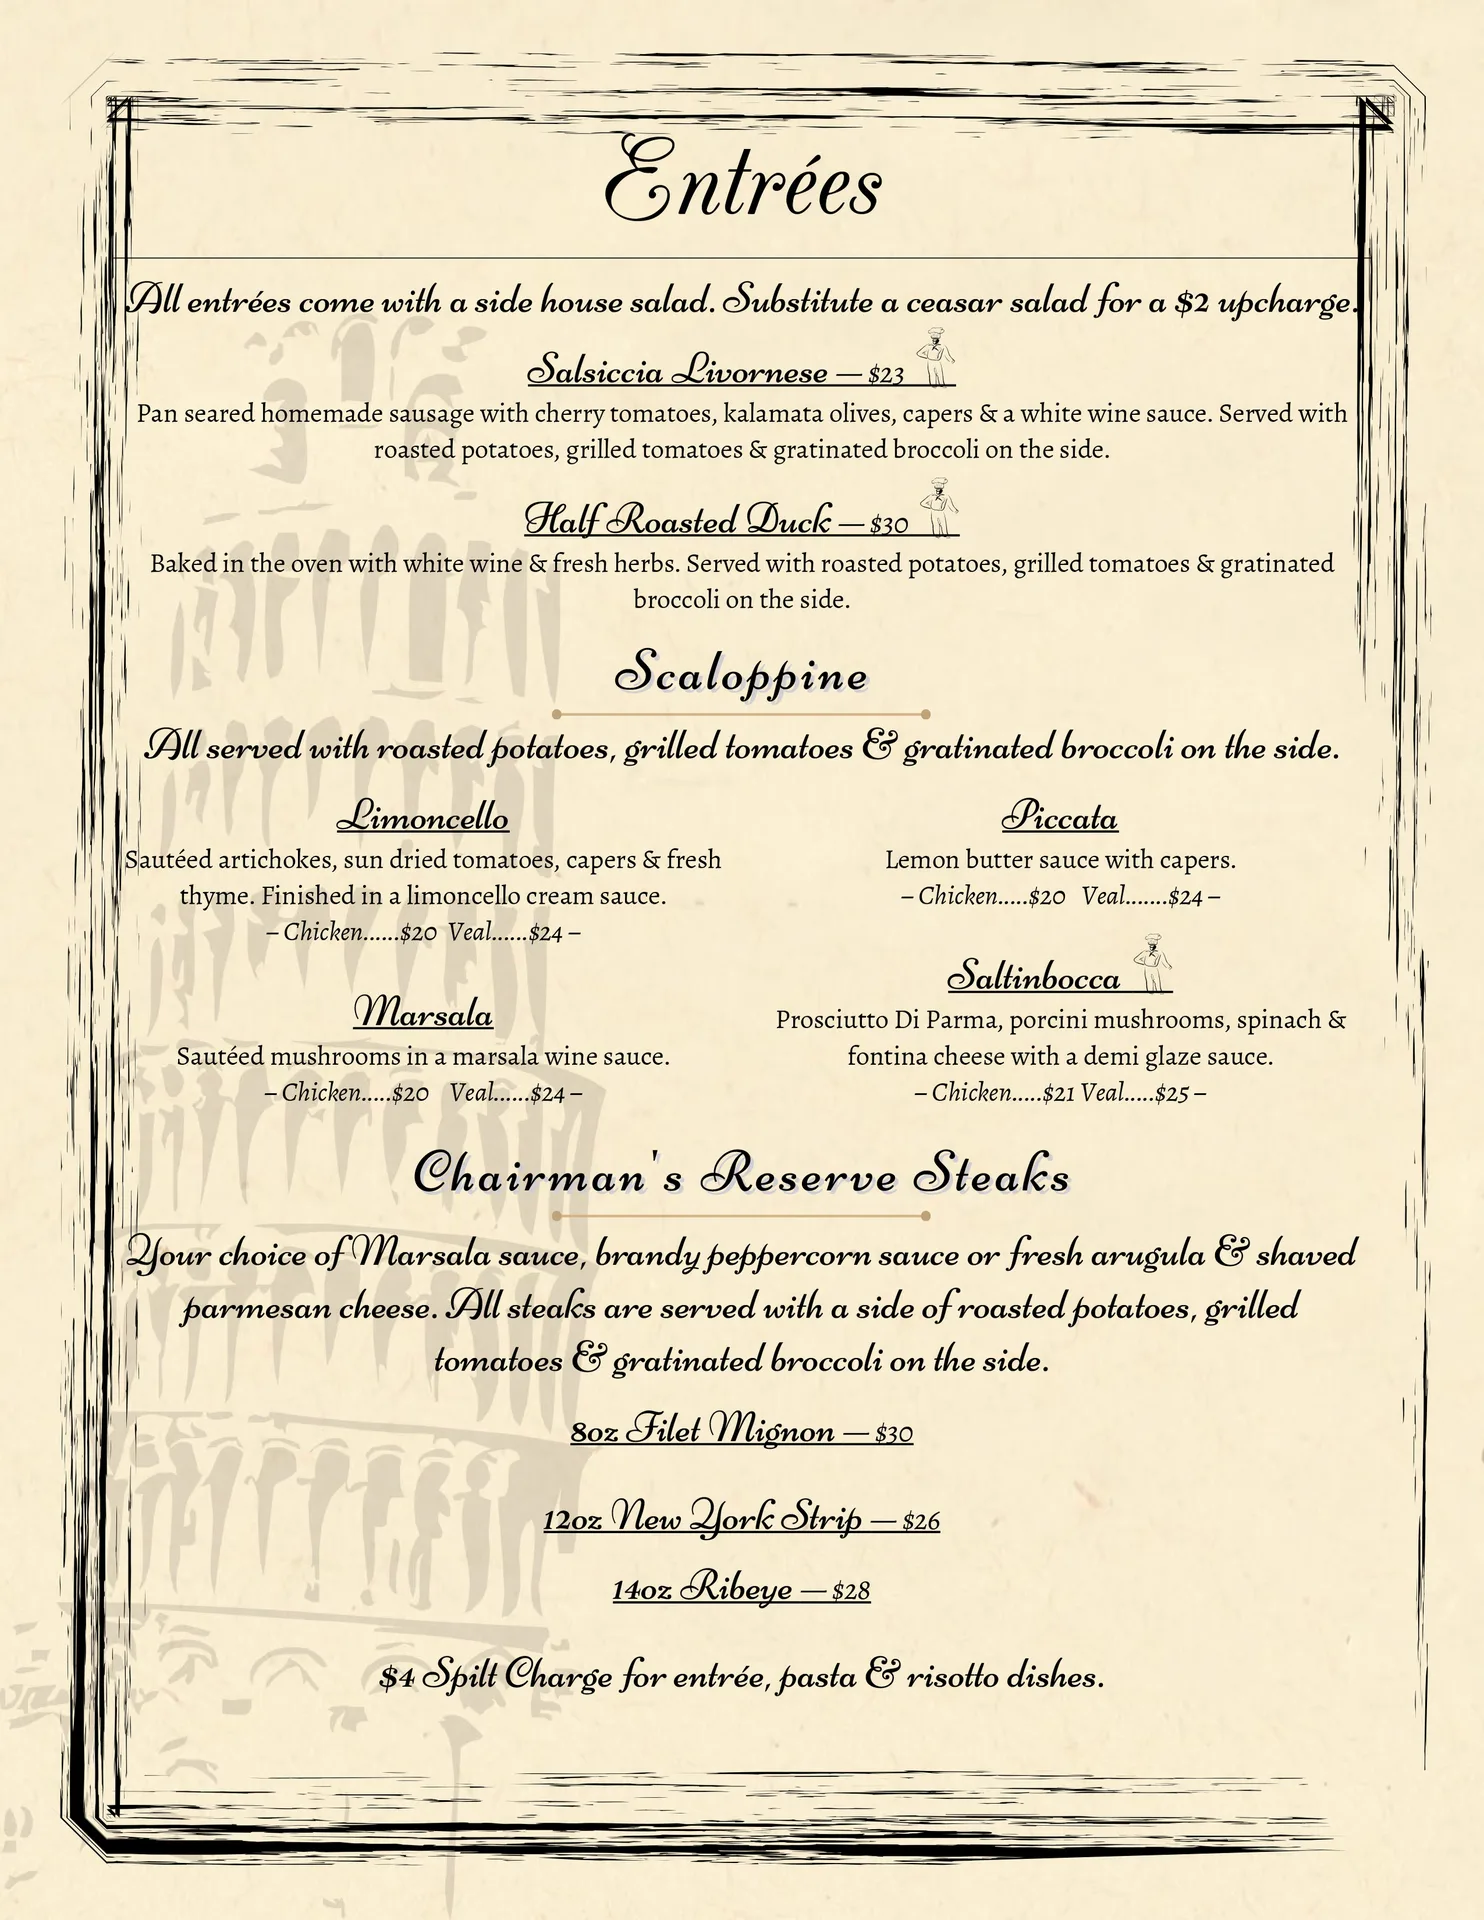 Entrées
All entrées come with a side house salad. Substitute a ceasar salad for a $2 upcharge.
Salsiccia Livornese — $23
Pan seared homemade sausage with cherry tomatoes, kalamata olives, capers & a white wine sauce. Served with
roasted potatoes, grilled tomatoes & gratinated broccoli on the side.
Half Roasted Duck — $30
Baked in the oven with white wine & fresh herbs. Served with roasted potatoes, grilled tomatoes & gratinated
broccoli on the side.
Scaloppine
All served with roasted potatoes, grilled tomatoes & gratinated broccoli on the side.
Limoncello
Sautéed artichokes, sun dried tomatoes, capers & fresh
thyme. Finished in a limoncello cream sauce.
– Chicken......$20 Veal......$24 –
Marsala
Sautéed mushrooms in a marsala wine sauce.
– Chicken.....$20 Veal......$24 –
Piccata
Lemon butter sauce with capers.
– Chicken.....$20 Veal.......$24 –
Saltinbocca
Prosciutto Di Parma, porcini mushrooms, spinach &
fontina cheese with a demi glaze sauce.
– Chicken.....$21 Veal.....$25 –
Chairman's Reserve Steaks
Your choice of Marsala sauce, brandy peppercorn sauce or fresh arugula & shaved
parmesan cheese. All steaks are served with a side of roasted potatoes, grilled
tomatoes & gratinated broccoli on the side.
8oz Filet Mignon — $30
12oz New York Strip — $26
14oz Ribeye — $28
$4 Spilt Charge for entrée, pasta & risotto dishes.